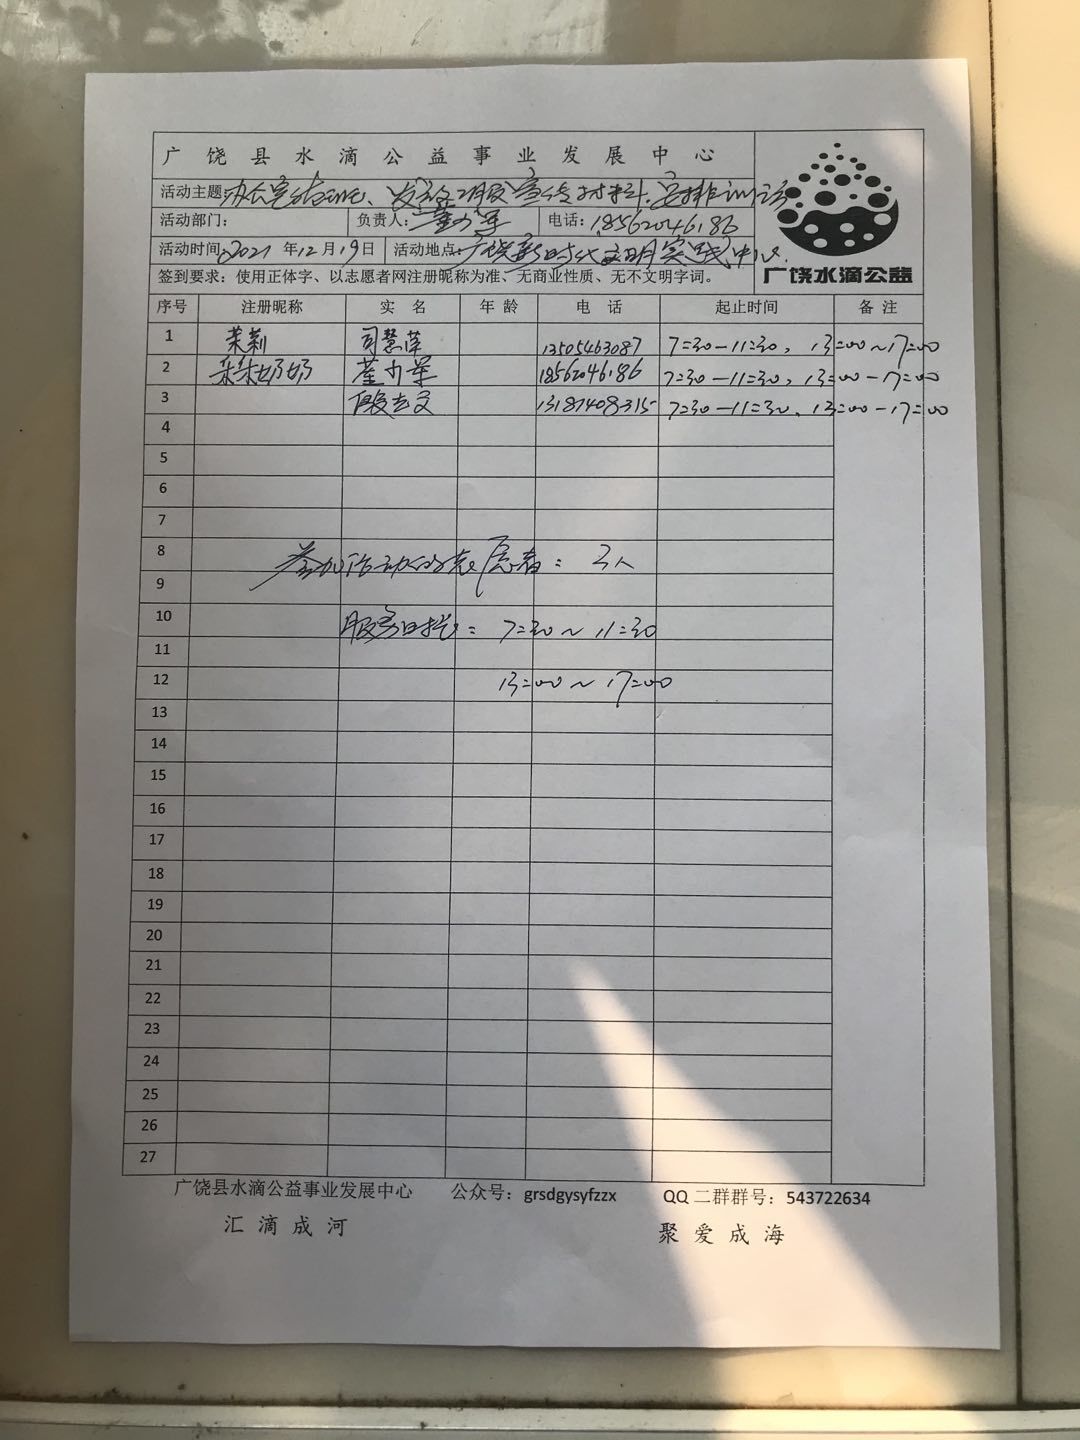 广饶县水滴公益事业发展中心
活动主题: 办公室值班、发放 宣传材料、安排
活动部门: 负责人: 董 军 电话: 18562046186
活动时间: 2021 年 12 月 19 日 活动地点: 广饶新时代文明实践中心.
签到要求: 使用正体字、以志愿者网注册昵称为准、无商业性质、无不文明字词。
广饶水滴公益
序号 注册昵称 实 名 年 龄 电 话 起止时间 备 注
1 茉莉 司慧萍 13505463087 7=30-11=30, 13=00~17=00
2 朵朵奶奶 董 军 18562046186 7=30-11=30, 13=00-17=00
3 13181408315 7=30-11=30、13=00-17=00
4
5
6
7
8 参加活动的志愿者: 3人
9
10 服务时长: 7=30~11=30
11
12 13=00~17=00
13
14
15
16
17
18
19
20
21
22
23
24
25
26
27
广饶县水滴公益事业发展中心 公众号: grsdgysyfzzx QQ 二群群号: 543722634
汇 滴 成 河 聚 爱 成 海